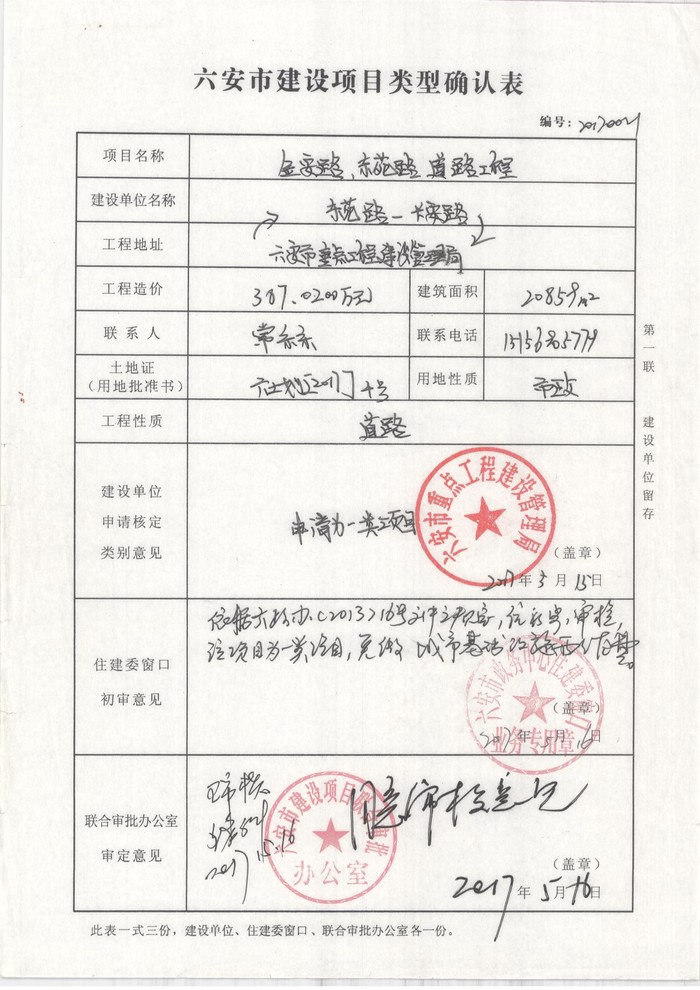 六安市建设项目类型确认表
编号：2017004
项目名称 金安路、东苑路 道路工程
建设单位名称 东苑路—长安路
工程地址 六安市重点工程建设管理局
工程造价 387.0200万元 建筑面积 20859m2
联系人 常 联系电话
土地证
（用地批准书） [2017] 十号 用地性质 市政
工程性质 道路
建设单位
申请核定
类别意见
申请为一类项目
六安市重点工程建设管理局
（盖章）
2017年5月15日
住建委窗口
初审意见
依据六 办[2013]216号文件 审核,
该项目为一类项目,免缴 城市基础设施
六安市政务中心住建委窗口
业务专用章
（盖章）
2017年5月16日
联合审批办公室
审定意见
同意审核意见
六安市建设项目联合审批
办公室
2017
（盖章）
2017年5月16日
第一联
建设单位留存
此表一式三份，建设单位、住建委窗口、联合审批办公室各一份。